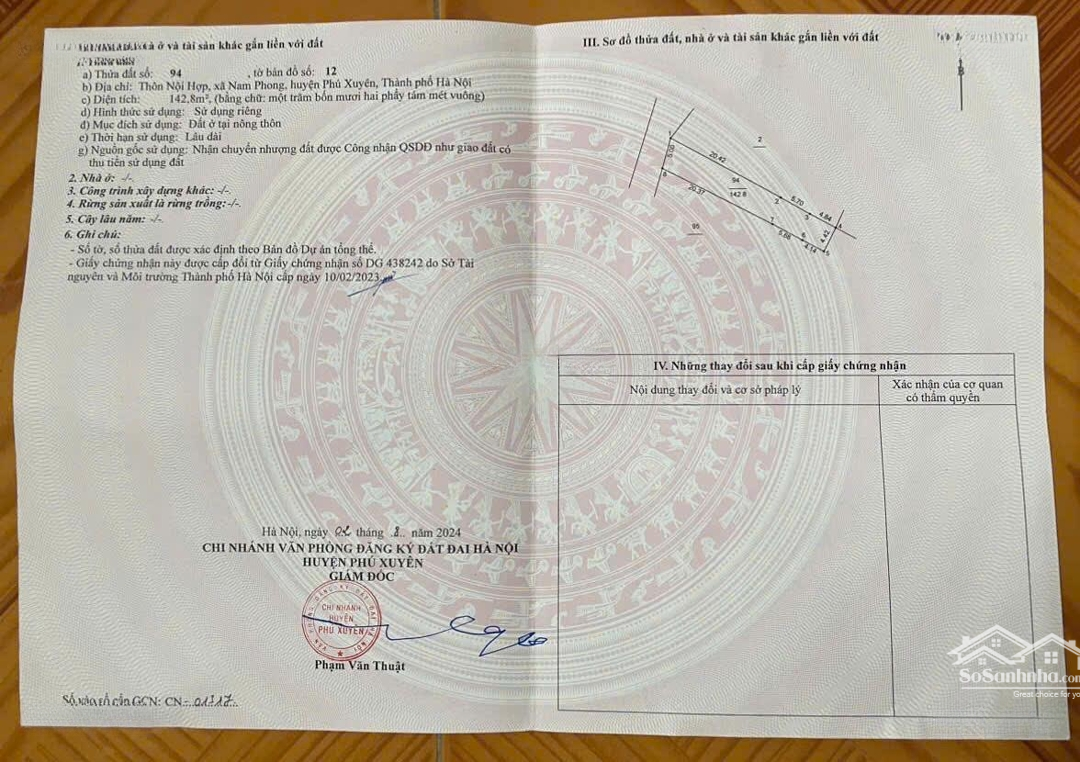 à ở và tài sản khác gắn liền với đất
a) Thửa đất số: 94 , tờ bản đồ số: 12
b) Địa chỉ: Thôn Nội Hợp, xã Nam Phong, huyện Phú Xuyên, Thành phố Hà Nội
c) Diện tích: 142,8m², (bằng chữ: một trăm bốn mươi hai phẩy tám mét vuông)
d) Hình thức sử dụng: Sử dụng riêng
đ) Mục đích sử dụng: Đất ở tại nông thôn
e) Thời hạn sử dụng: Lâu dài
g) Nguồn gốc sử dụng: Nhận chuyển nhượng đất được Công nhận QSDĐ như giao đất có
thu tiền sử dụng đất
2. Nhà ở: -/-
3. Công trình xây dựng khác: -/-
4. Rừng sản xuất là rừng trồng:-/-
5. Cây lâu năm: -/-
6. Ghi chú:
- Số tờ, số thửa đất được xác định theo Bản đồ Dự án tổng thể.
- Giấy chứng nhận này được cấp đổi từ Giấy chứng nhận số DG 438242 do Sở Tài
nguyên và Môi trường Thành phố Hà Nội cấp ngày 10/02/2023.
Hà Nội, ngày 02 tháng 8 năm 2024
CHI NHÁNH VĂN PHÒNG ĐĂNG KÝ ĐẤT ĐAI HÀ NỘI
HUYỆN PHÚ XUYÊN
GIÁM ĐỐC
CHI NHÁNH
HUYỆN
PHÚ XUYÊN
Phạm Văn Thuật
Số vào sổ cấp GCN: CN-01317
III. Sơ đồ thửa đất, nhà ở và tài sản khác gắn liền với đất
B
2
1
5.00
20.42
94
142.8
8
20.37
2
5.70
3
4.84
4
95
7
5.68
6
4.42
4.14
5
IV. Những thay đổi sau khi cấp giấy chứng nhận
Nội dung thay đổi và cơ sở pháp lý
Xác nhận của cơ quan
có thẩm quyền
SoSanhnha.com
Great choice for yo